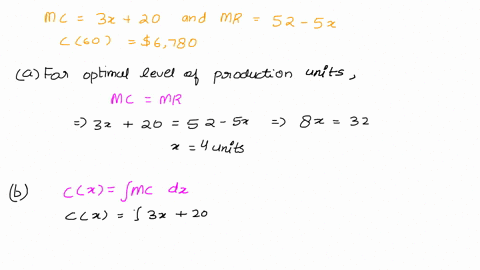 MC = 3x + 20 and MR = 52 - 5x
C(60) = $6,780
(a) For optimal level of production units,
MC = MR
=> 3x + 20 = 52 - 5x => 8x = 32
x = 4 units
(b) C(x) = ∫MC dx
C(x) = ∫ 3x + 20